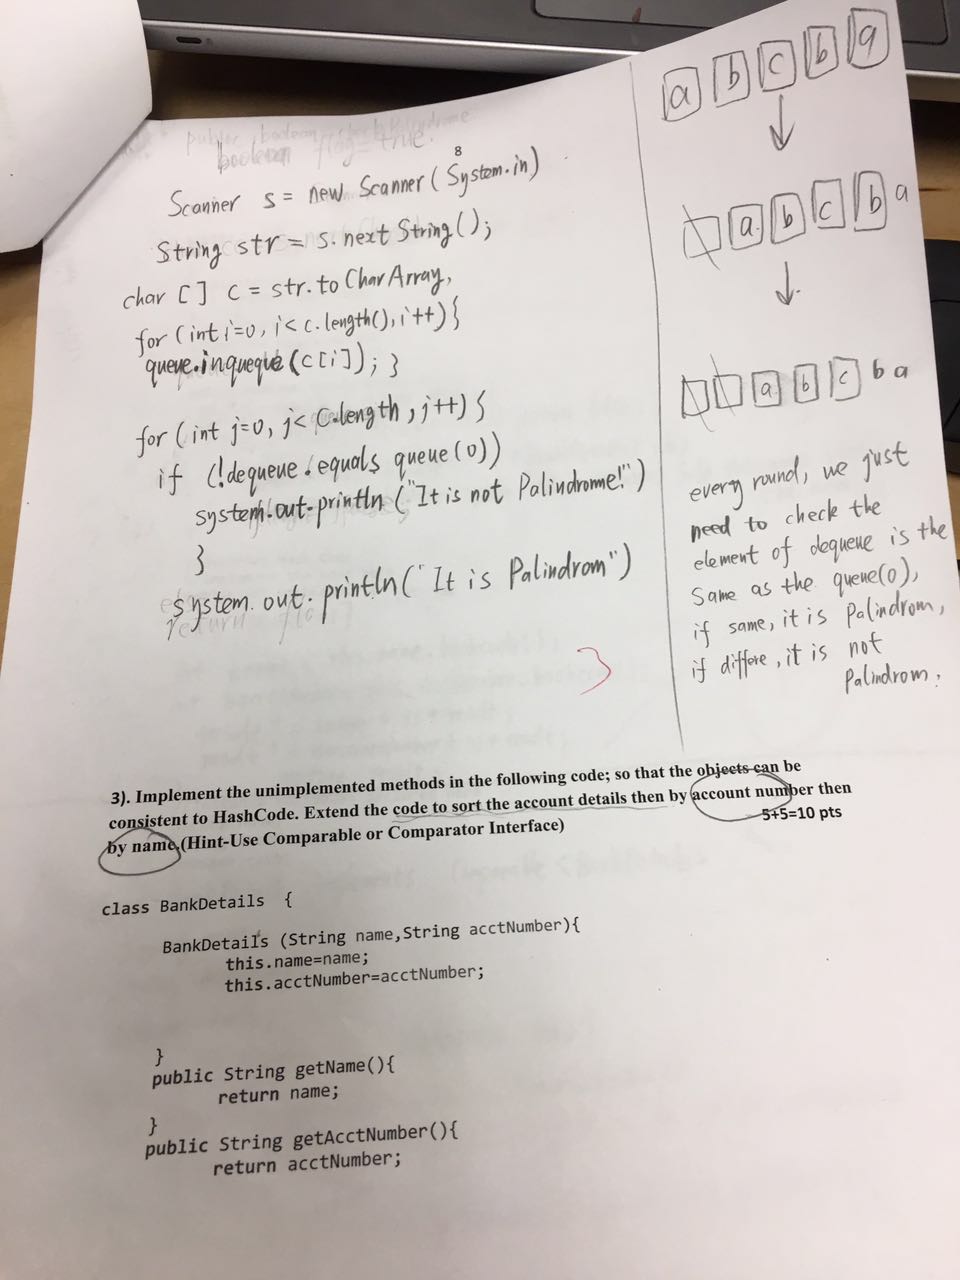 public boolean checkPalindrome
boolean flag = true.
8
Scanner s = new Scanner (System.in)
String str = s.next String();
char [] c = str.to CharArray,
for (int i=0, i< c.length(), i++) {
queue.inqueque (c[i]); }
for (int j=0, j< C.length, j++) {
if (!dequeue.equals queue(0))
system.out.println ("It is not Palindrome!")
}
system.out.println(" It is Palindrom")
return flag
3
a b c b a
a b c b a
a b c b a
every round, we just
need to check the
element of dequeue is the
same as the queue(0),
if same, it is Palindrom,
if differe, it is not
Palindrom.
3). Implement the unimplemented methods in the following code; so that the objects can be
consistent to HashCode. Extend the code to sort the account details then by account number then
by name.(Hint-Use Comparable or Comparator Interface)
5+5=10 pts
class BankDetails {
BankDetails (String name,String acctNumber){
this.name=name;
this.acctNumber=acctNumber;
}
public String getName(){
return name;
}
public String getAcctNumber(){
return acctNumber;